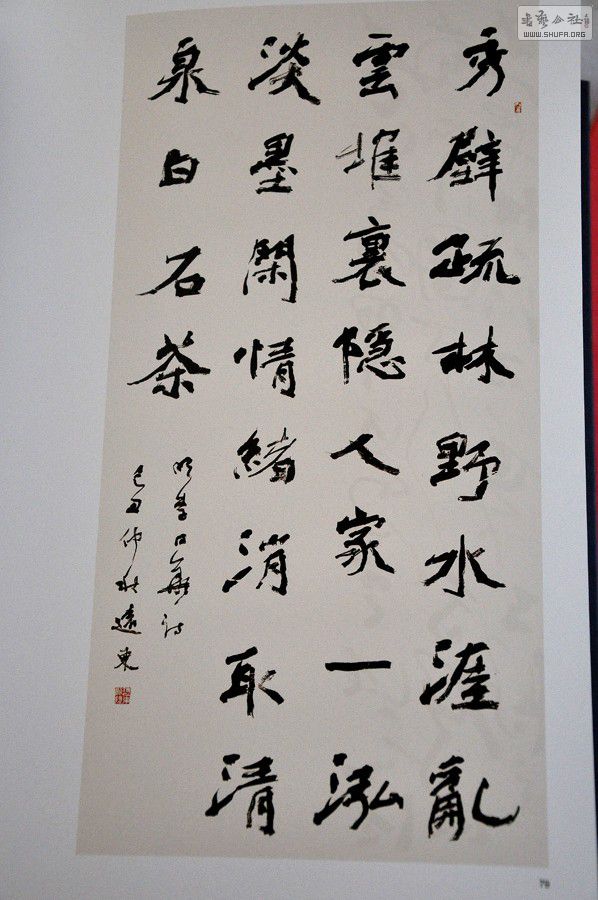 秀壁疏林野水涯亂
雲堆裏隱人家一泓
淡墨閑情緒消取清
泉白石茶
明李日華詩
己丑仲秋遠東
書艺公社
WWW.SHUFA.ORG
79